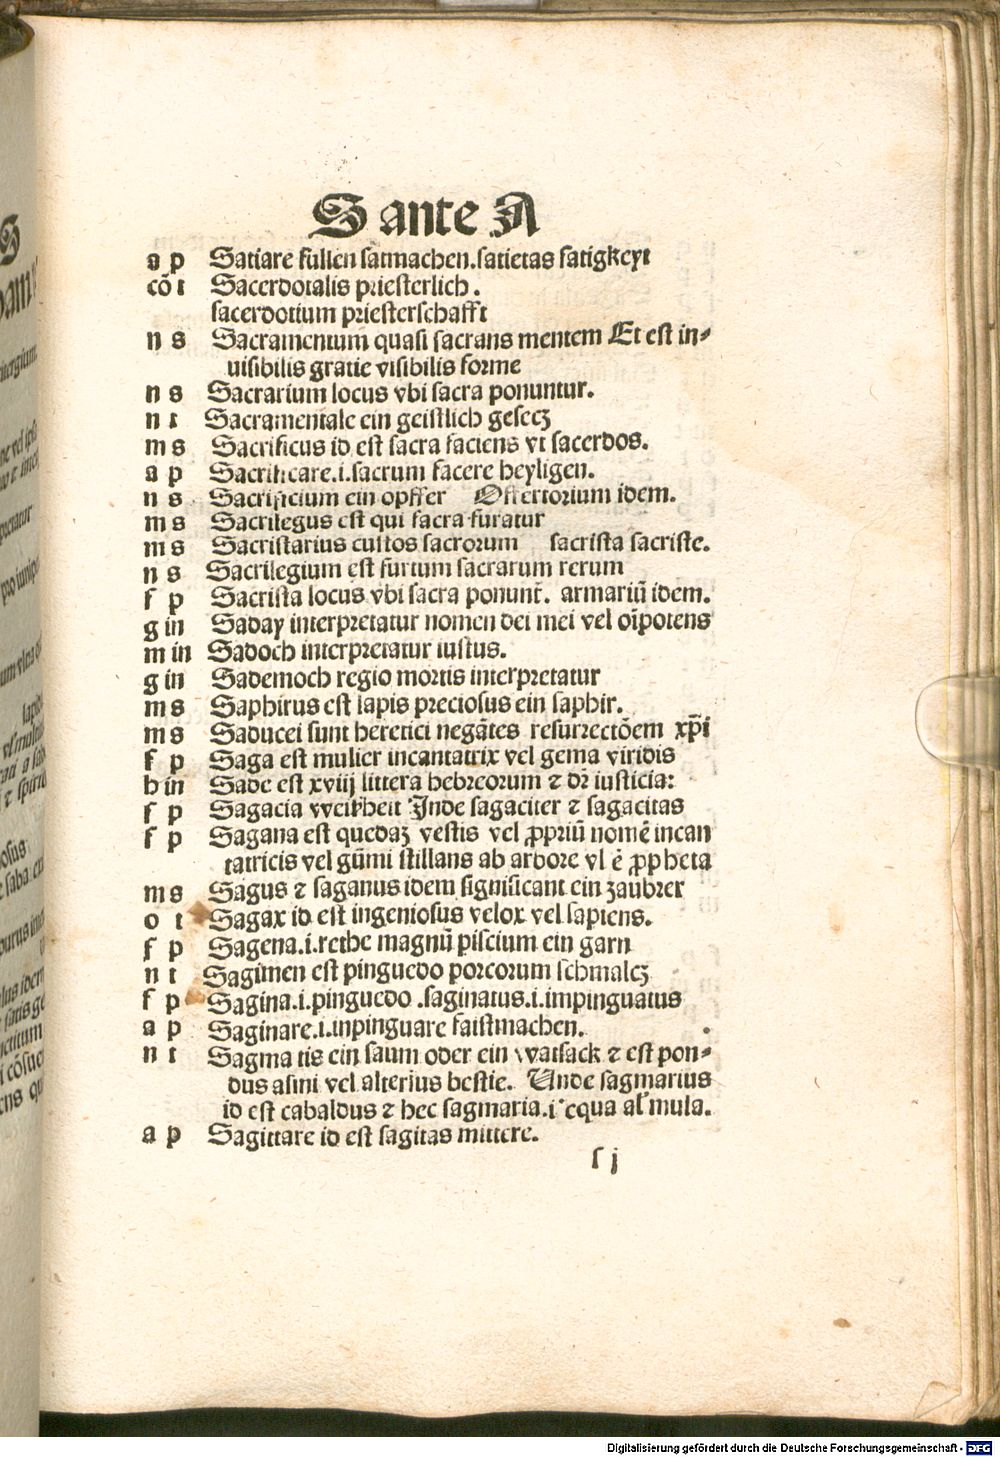 S ante A
a p Satiare füllen satmachen. satietas satigkeyt
cō t Sacerdotalis priesterlich.
sacerdotium priesterschafft
n s Sacramentum quasi sacrans mentem Et est in⸗
uisibilis gratie visibilis forme
n s Sacrarium locus vbi sacra ponuntur.
n t Sacramentale ein geistlich gesecz
m s Sacrificus id est sacra faciens vt sacerdos.
a p Sacrificare.i.sacrum facere heyligen.
n s Sacrificium ein opffer Offertorium idem.
m s Sacrilegus est qui sacra furatur
m s Sacristarius custos sacrorum sacrista sacriste.
n s Sacrilegium est furtum sacrarum rerum
f p Sacrista locus vbi sacra ponunt̄. armariū idem.
g in Saday interpretatur nomen dei mei vel oīpotens
m in Sadoch interpretatur iustus.
g in Sademoch regio mortis interpretatur
m s Saphirus est lapis preciosus ein saphir.
m s Saducei sunt heretici negātes resurrectōem xp̄i
f p Saga est mulier incantatrix vel gema viridis
h in Sade est xviij littera hebreorum ⁊ dr̄ iusticia:
f p Sagacia weißheit Inde sagaciter ⁊ sagacitas
f p Sagana est quedaz vestis vel ꝓpriū nomē incan
tatricis vel gūmi stillans ab arbore vl ē ꝓpheta
m s Sagus ⁊ saganus idem significant ein zaubrer
o t Sagax id est ingeniosus velox vel sapiens.
f p Sagena.i.rethe magnū piscium ein garn
n t Sagimen est pinguedo porcorum schmalcz
f p Sagina.i.pinguedo .saginatus.i.impinguatus
a p Saginare.i.inpinguare faistmachen.
n t Sagma tis ein saum oder ein watsack ⁊ est pon⸗
dus asini vel alterius bestie. Unde sagmarius
id est caballus ⁊ hec sagmaria.i equa al' mula.
a p Sagittare id est sagitas mittere.
s j
Digitalisierung gefördert durch die Deutsche Forschungsgemeinschaft - DFG